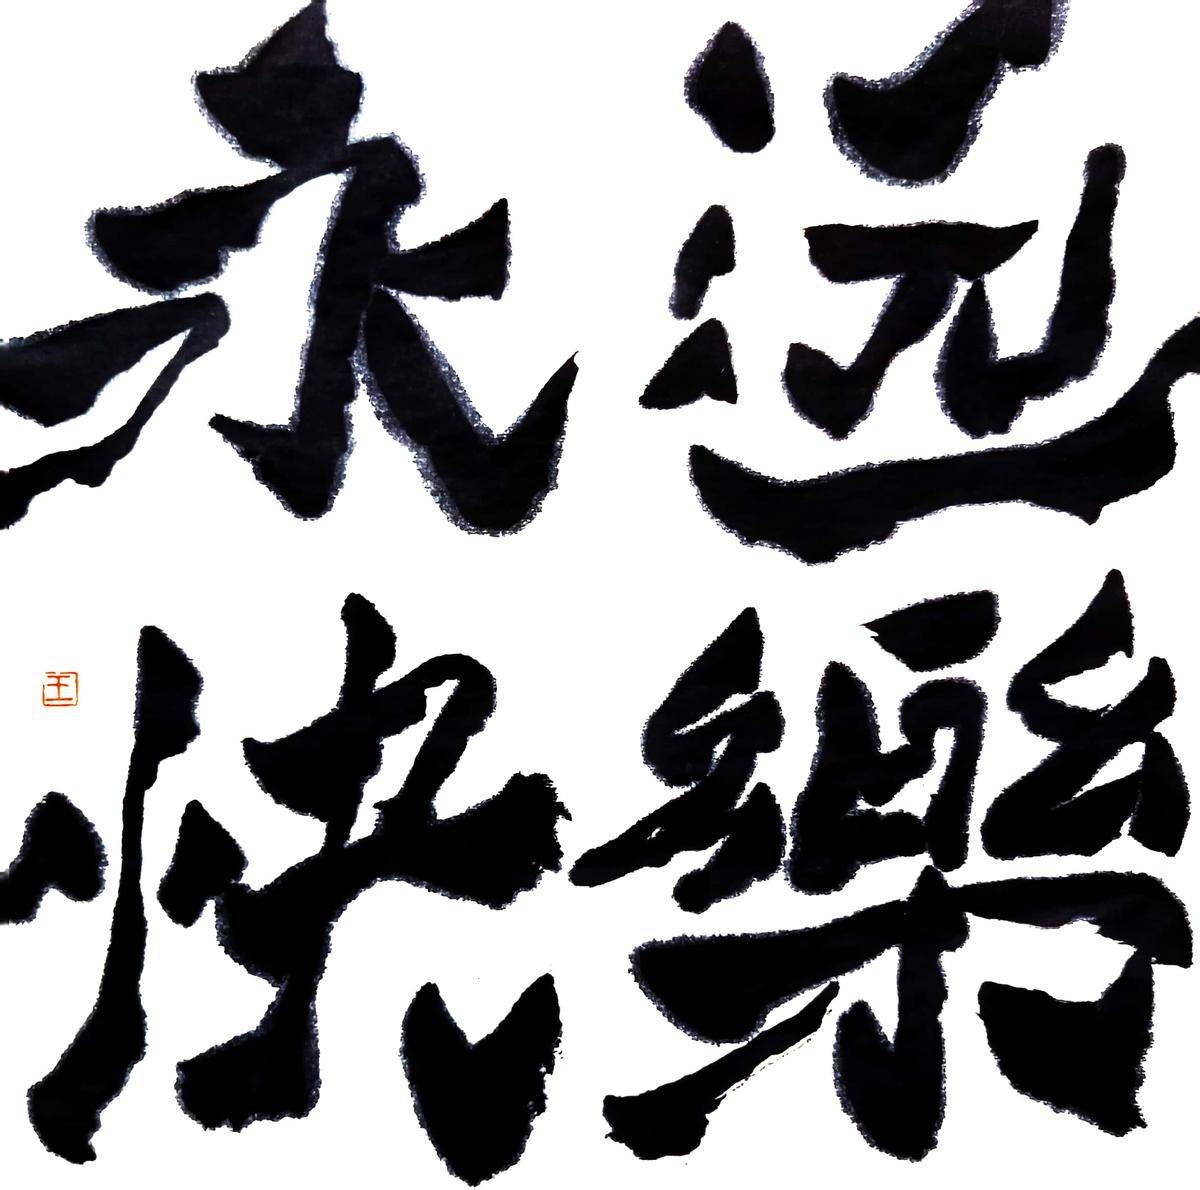 永远
快樂
王